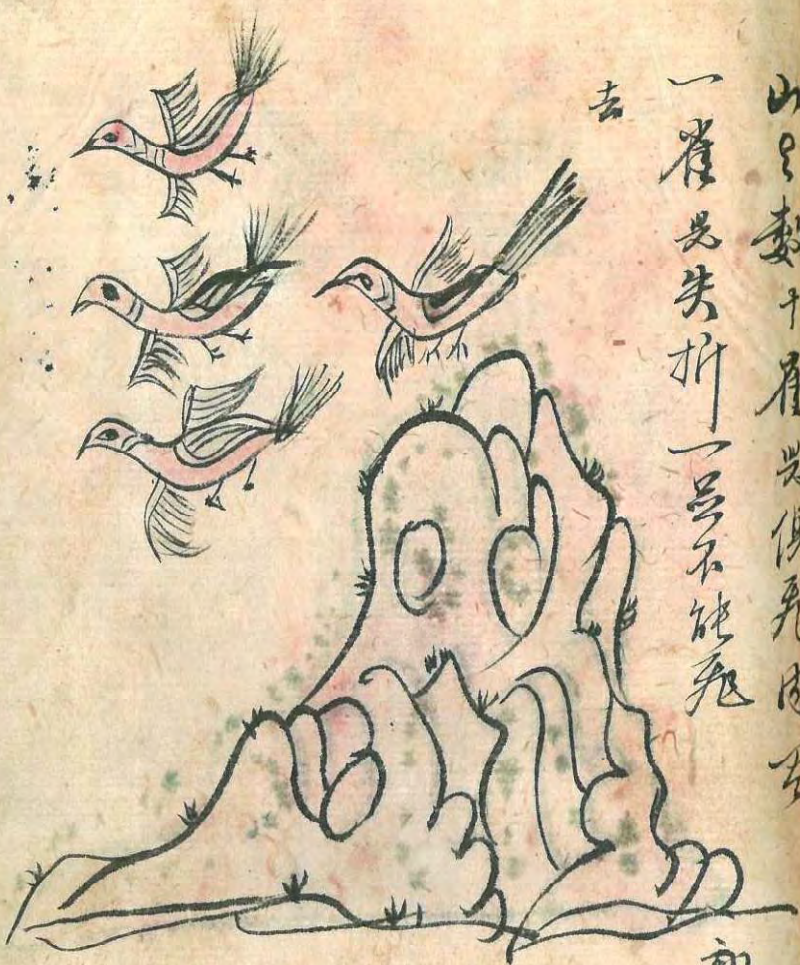 山上數十雀兒俱飛
一雀兒失折一足不能飛
去